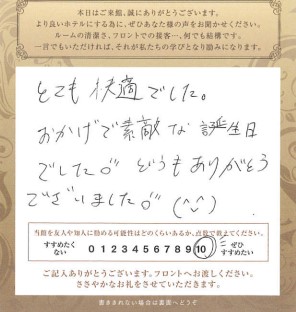 本日はご来館、誠にありがとうございます。
より良いホテルにする為に、ぜひあなた様の声をお聞かせください。
ルームの清潔さ、フロントでの接客…何でも結構です。
一言でもいただければ、それが私たちの学びとなり励みになります。
とても快適でした。
おかげで素敵な誕生日
でした♂ どうもありがとう
ございました♂ (^ᴗ^)
当館を友人や知人に勧める可能性はどのくらいあるか、点数で教えてください。
すすめたくない 0 1 2 3 4 5 6 7 8 9 10 ぜひすすめたい
ご記入ありがとうございます。フロントへお渡しください。
ささやかなお礼をさせていただきます。
書ききれない場合は裏面へどうぞ